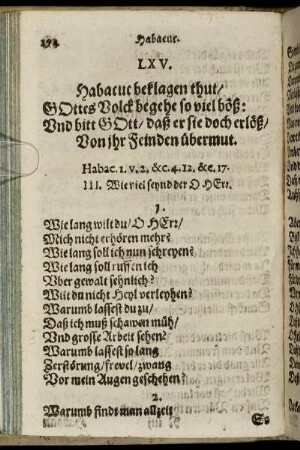 194 Habacuc.
LXV.
Habacuc beklagen thut/
GOttes Volck begehe so viel böß:
Vnd bitt GOtt/ daß er sie doch erlöß/
Von jhr Feinden übermut.
Habac. 1. v. 2, &c. 4. 12, &c. 17.
III. Wie viel seynd der O HErr.
1.
Wie lang wilt du/ O HErr/
Mich nicht erhören mehr?
Wie lang soll ich nun schreyen?
Wie lang soll ruffen ich
Vber gewalt sehnlich?
Wilt du nicht Heyl verleyhen?
Warumb lassest du zu/
Daß ich muß schawen müh/
Vnd grosse Arbeit sehen?
Warumb lassest so lang
Zerstörung/ frevel/ zwang
Vor mein Augen geschehen?
2.
Warumb findt man allzeit